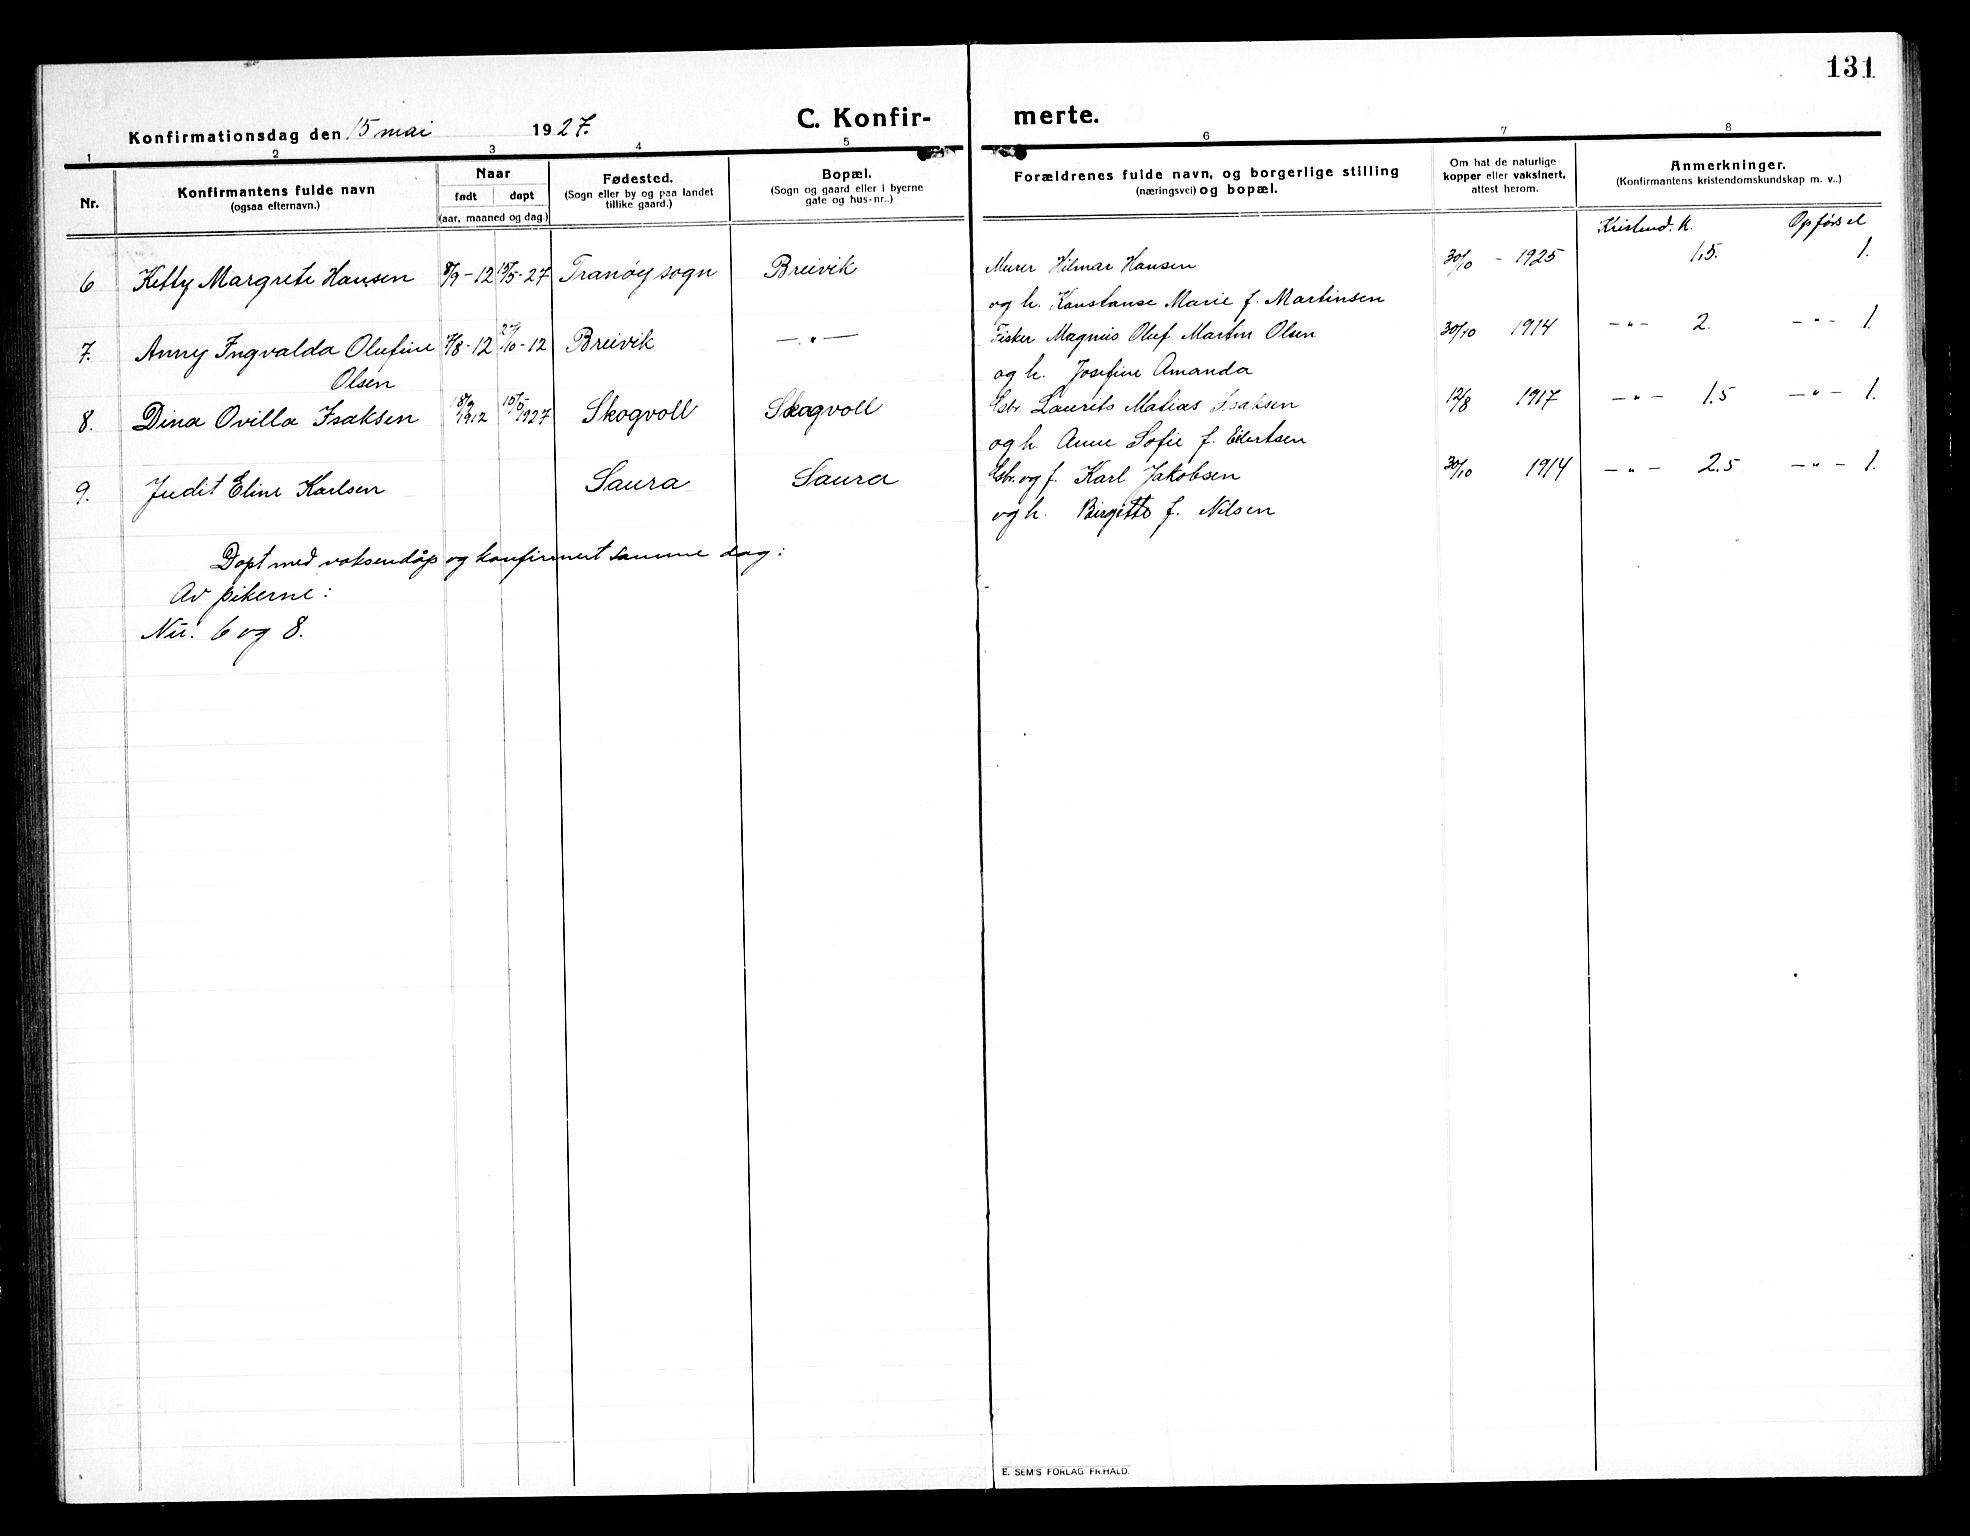 131
Konfirmationsdag den 15 mai 1927.
C. Konfirmerte.
1 2 3 4 5 6 7 8
Nr.
Konfirmantens fulde navn
(ogsaa efternavn.)
Naar
født døpt
(aar, maaned og dag.)
Fødested.
(Sogn eller by og paa landet
tillike gaard.)
Bopæl.
(Sogn og gaard eller i byerne
gate og hus-nr..)
Forældrenes fulde navn, og borgerlige stilling
(næringsvei) og bopæl.
Om hat de naturlige
kopper eller vaksinert,
attest herom.
Anmerkninger.
(Konfirmantens kristendomskundskap m. v..)
Kristend. k. Opførsel
6 Ketty Margrete Hansen 8/9-12 15/5-27 Tranøy sogn Breivik Murer Hilmar Hansen 30/10 - 1925 1,5. 1.
og h. Konstanse Marie f. Martinsen
7. Anny Ingvalda Olufine 7/8-12 27/10-12 Breivik — " — Fisker Magnus Oluf Martin Olsen 30/10 1914 — " — 2. — " — 1.
Olsen og h. Josefine Amanda
8. Dina Ovilla Isaksen 18/9 1912 15/5 1927 Skogvoll Skogvoll Gbr. Laurits Matias Isaksen 12/8 1917 — " — 1.5 — " — 1.
og h. Anne Sofie f. Edertsen
9. Judit Eline Karlsen Saura Saura Gbr. og f. Karl Jakobsen 30/10 1914 — " — 2.5 — " — 1.
og h. Birgitte f. Nilsen
Døpt med voksendåp og konfirmert samme dag:
Av pikerne:
Nr. 6 og 8.
E. SEM'S FORLAG FR.HALD.